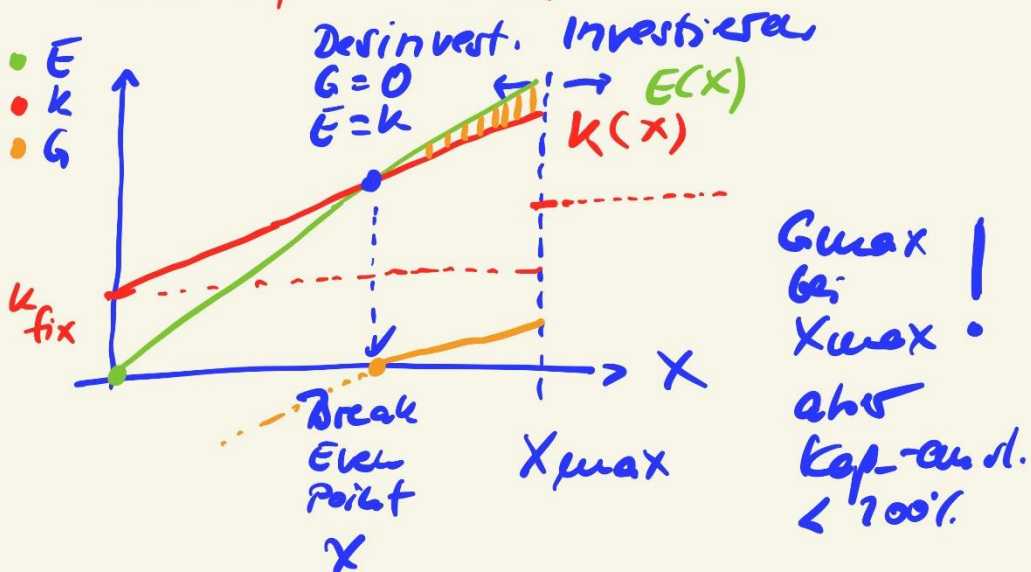 E
K
G
Desinvest. Investieren
G = 0
E = K
E(x)
K(x)
K fix
X
Break
Even
Point
X
Xmax
Gmax
bei
Xmax !
aber
Kap-ausl.
< 100%